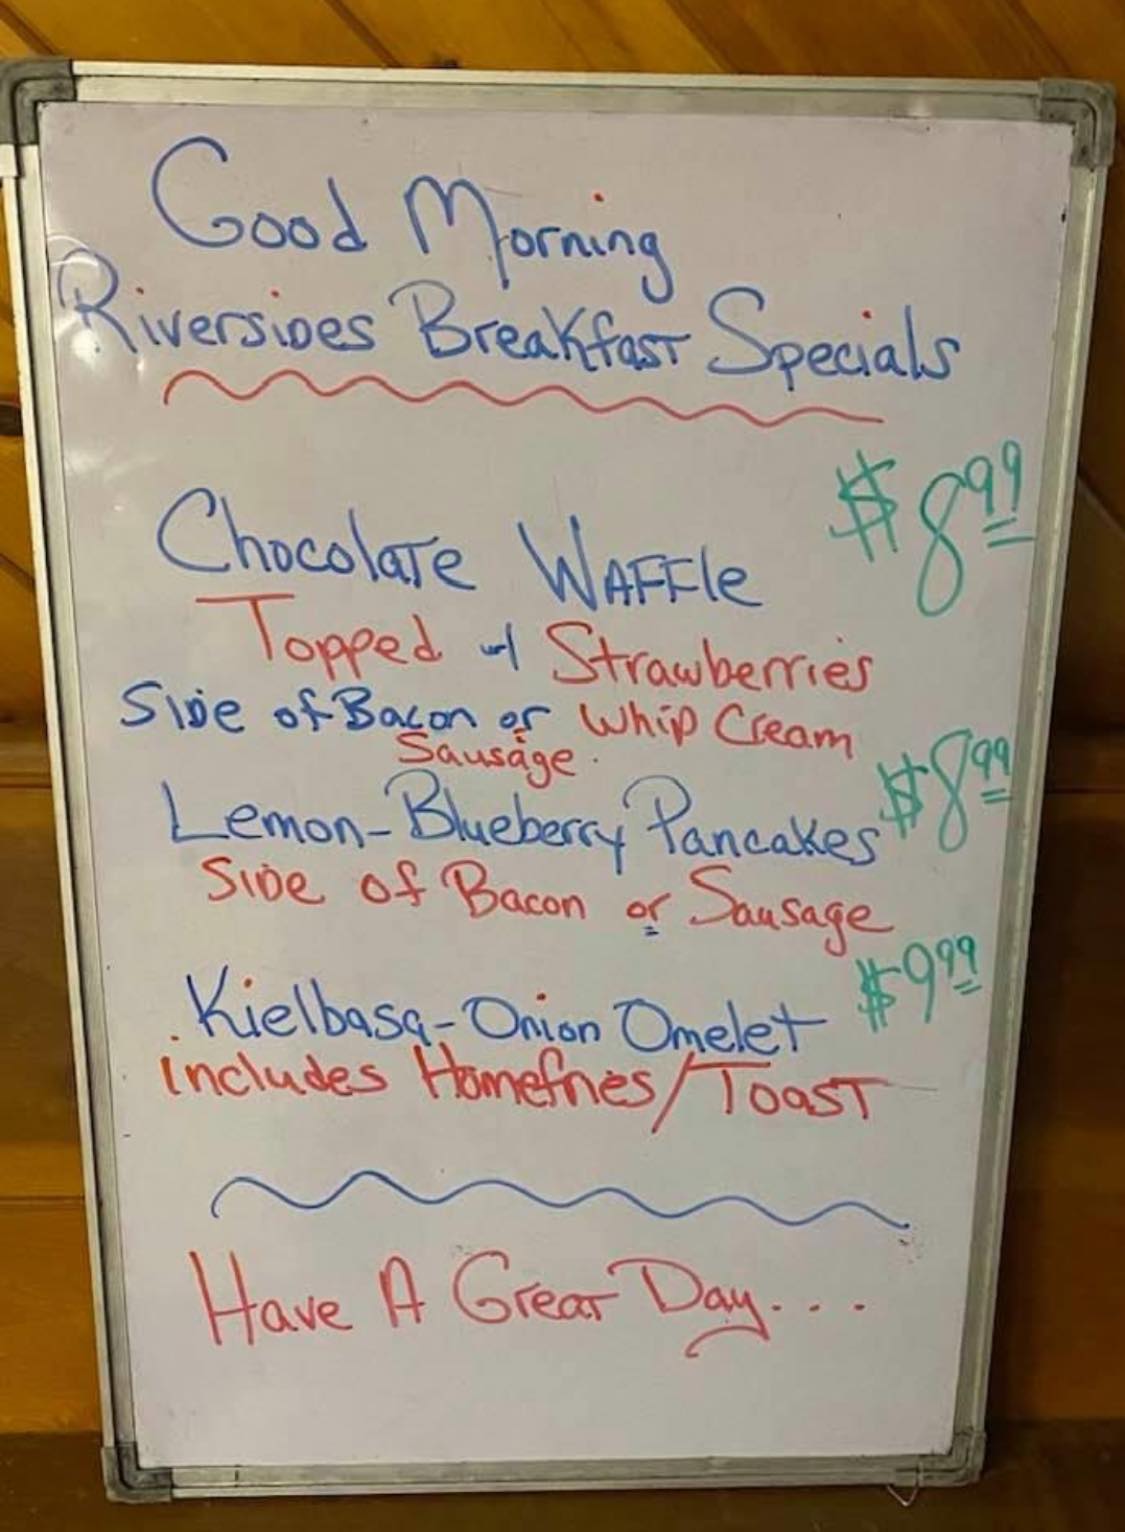 Good Morning
Riversides Breakfast Specials
$8.99
Chocolate Waffle
Topped w/ Strawberries
Side of Bacon or Whip Cream
Sausage
$8.99
Lemon-Blueberry Pancakes
Side of Bacon or Sausage
$9.99
Kielbasa-Onion Omelet
includes Homefries/Toast
Have A Great Day...